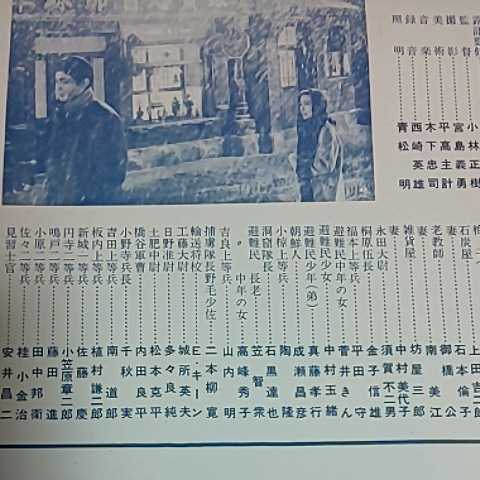 監督 小林正樹
撮影 宮島義勇
美術 平高主計
音楽 木下忠司
録音 西崎英雄
照明 青松明
石炭屋 上吉二郎
妻 石本倫子
老教師 御橋公
妻 南美江
雑貨屋 坊屋三郎
妻 中村美代子
永田大尉 須賀不二男
桐原伍長 金子信雄
福本上等兵 平田守
避難民中年の女 菅井きん
避難民少女 中村玉緒
避難民少年(弟) 真藤孝行
朝鮮人 成瀬昌彦
小椋上等兵 陶隆
洞窟隊長 石黒達也
避難民 長老 笠智衆
〃 中年の女 高峰秀子
吉良上等兵 山内明
捕虜隊長野毛少佐 二本柳寛
輸送将校 E・キーン
工藤大尉 城所英夫
日野准尉 多々良純
土肥中尉 松本克平
橋谷軍曹 内田良平
小野寺兵長 千秋実
吉田上等兵 南道郎
板内上等兵 植村謙二郎
新城一等兵 佐藤慶
円寺二等兵 小笠原章二郎
鳴戸二等兵 藤田進
小原二等兵 田中邦衛
佐々二等兵 桂小金治
見習士官 安井昌二